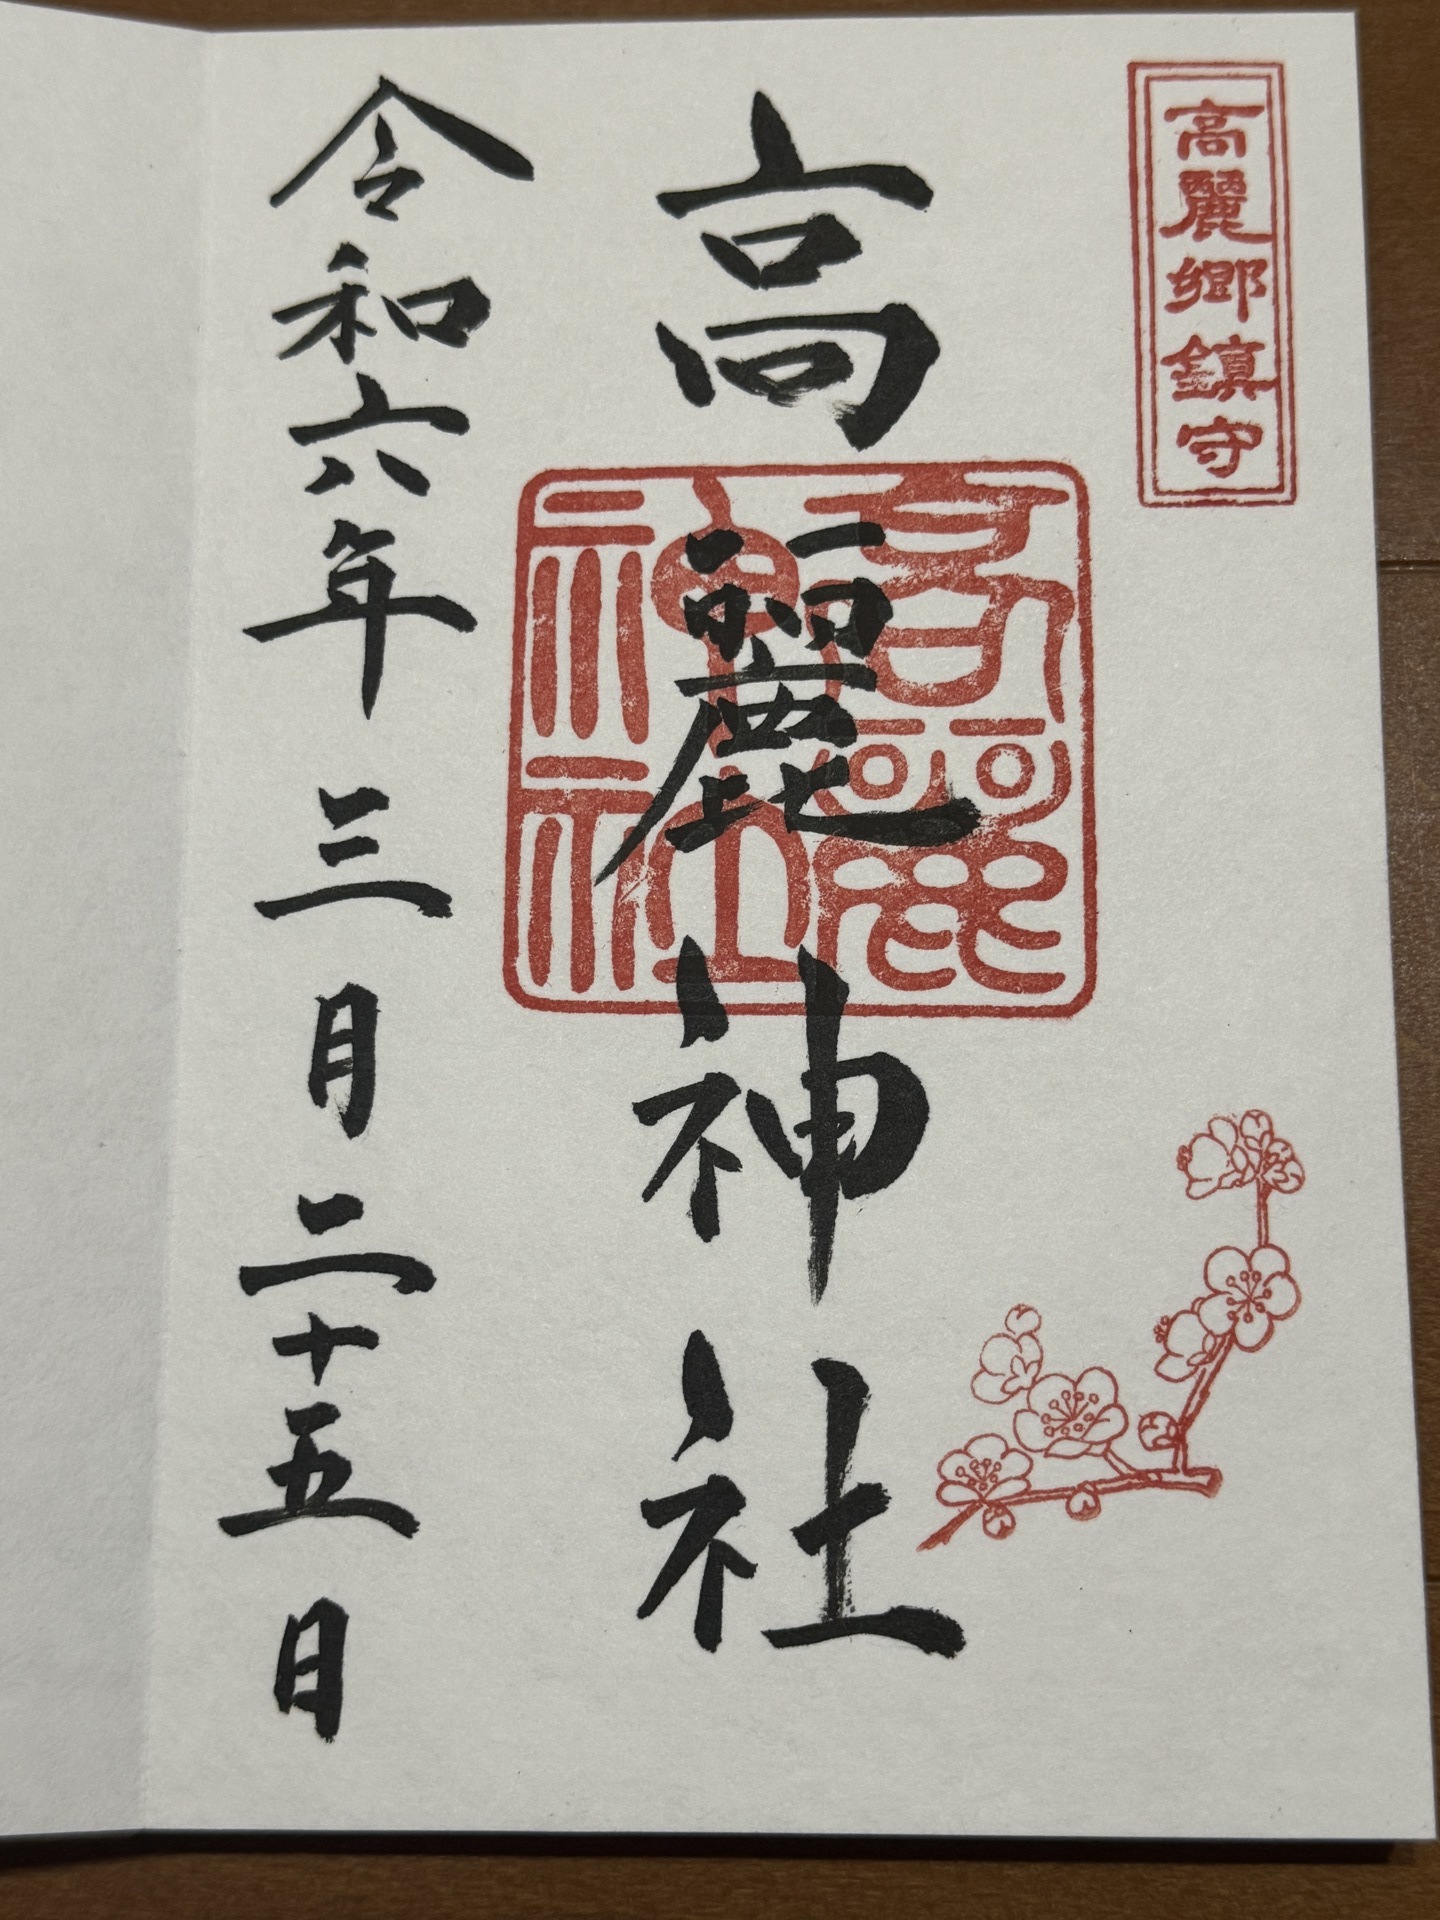 高麗郷鎮守
高麗神社
高麗神社
令和六年三月二十五日